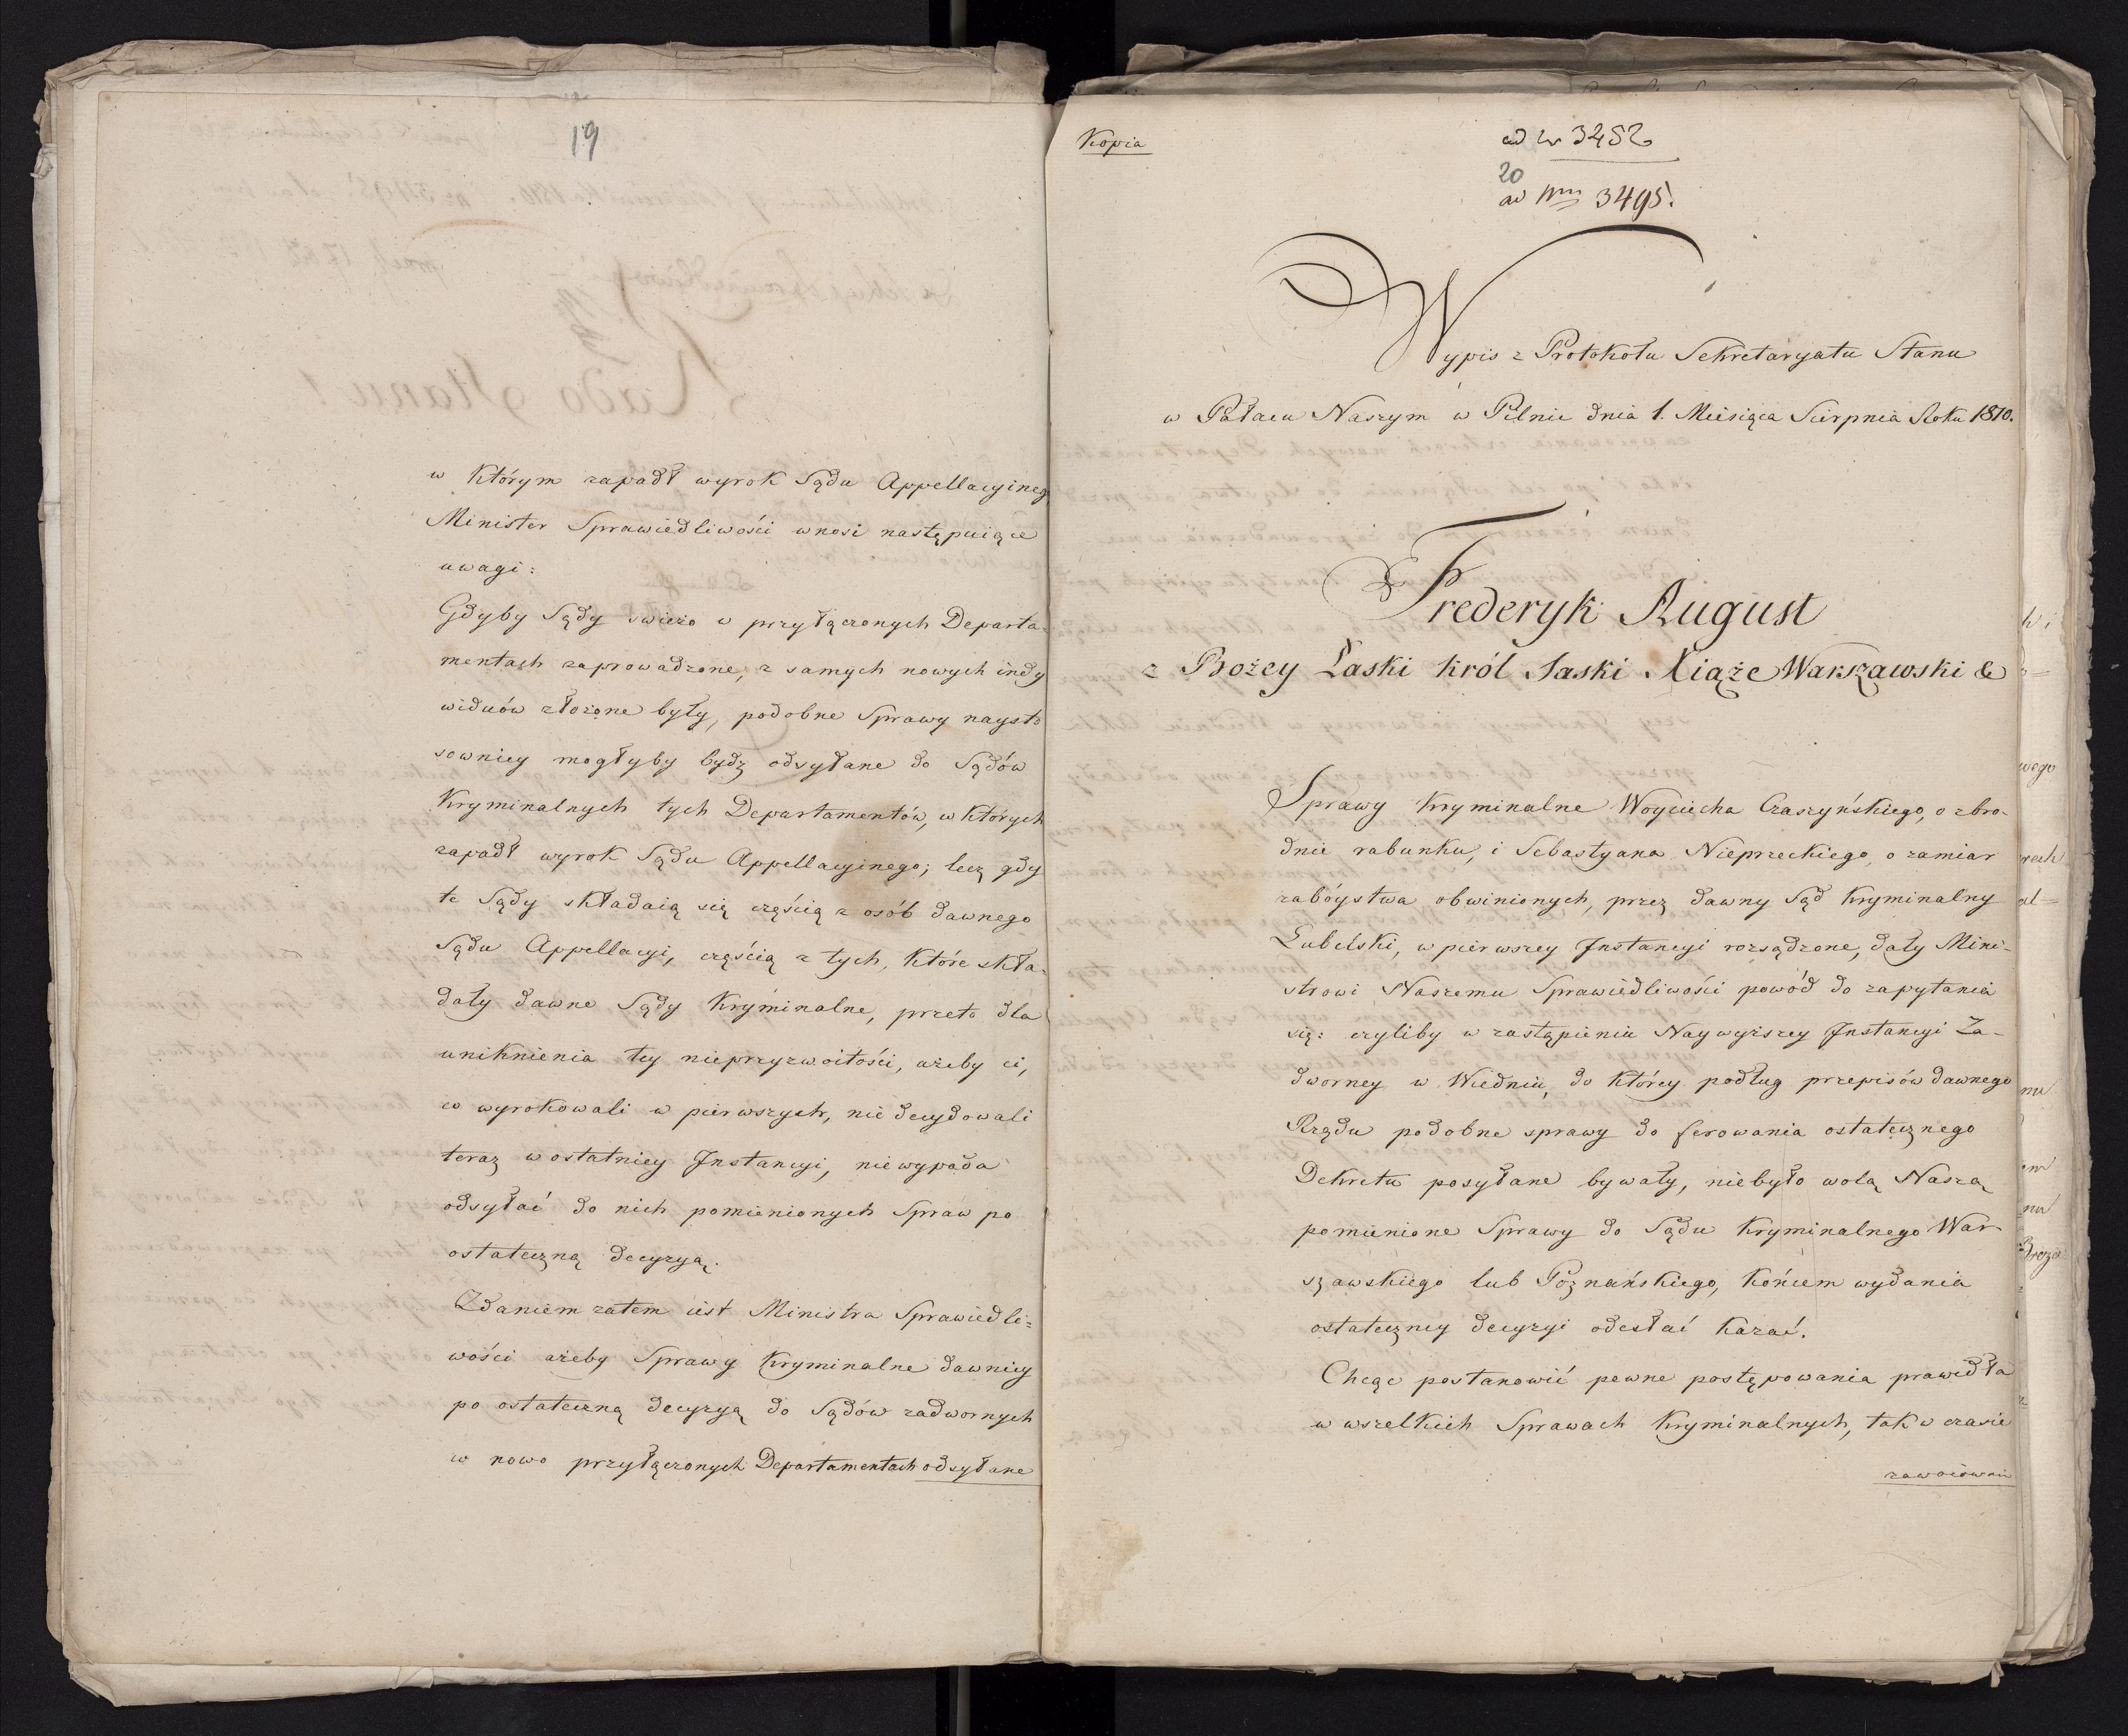 19
w którym zapadł wyrok Sądu Appellacyinego
Minister Sprawiedliwości wnosi następuiące
uwagi:
Gdyby Sądy świeżo w przyłączonych Departa-
mentach zaprowadzone, z samych nowych indy
widuów złożone były, podobne Sprawy naysto
sowniey mogłyby bydz odsyłane do Sądów
Kryminalnych tych Departamentów, w których
zapadł wyrok Sądu Appellacyinego; lecz gdy
te Sądy składaią się częścią z osób dawnego
Sądu Appellacyi, częścią z tych, które skła-
dały dawne Sądy Kryminalne, przeto dla
uniknienia tey nieprzyzwoitości, ażeby ci,
co wyrokowali w pierwszych, nie decydowali
teraz w ostatniey Instancyi, nie wypada
odsyłać do nich pomienionych Spraw po
ostateczną decyzyą.
Zdaniem zatem iest Ministra Sprawiedli=
wości ażeby Sprawy Kryminalne dawniey
po ostateczną decyzyą do Sądów zadwornych
w nowo przyłączonych Departamentach odsyłane
Kopia
ad 3452
20
ad Nrum 3495.
Wypis z Protokołu Sekretaryatu Stanu
w Pałacu Naszym w Pilnic dnia 1. Miesiąca Sierpnia Roku 1810.
Frederyk August
z Bożey Łaski król Saski Xiąże Warszawski &
Sprawy kryminalne Woyciecha Czaszyńskiego, o zbro-
dnie rabunku, i Sebastyana Nieprzeckiego, o zamiar
zabóystwa obwinionych, przez dawny Sąd kryminalny
Lubelski, w pierwszey Instancyi rozsądzone, dały Mini-
strowi Naszemu Sprawiedliwości powód do zapytania
się: czyliby w zastąpieniu Naywyższey Instancyi Za-
dworney w Wiedniu, do którey podług przepisów dawnego
Rządu podobne sprawy do ferowania ostatecznego
Dekretu posyłane bywały, nie było wolą Naszą
pomienione Sprawy do Sądu kryminalnego War-
szawskiego lub Poznańskiego, końcem wydania
ostateczney decyzyi odesłać kazać.
Chcąc postanowić pewne postępowania prawidła
w wszelkich Sprawach kryminalnych, tak w czasie
zawoiowania